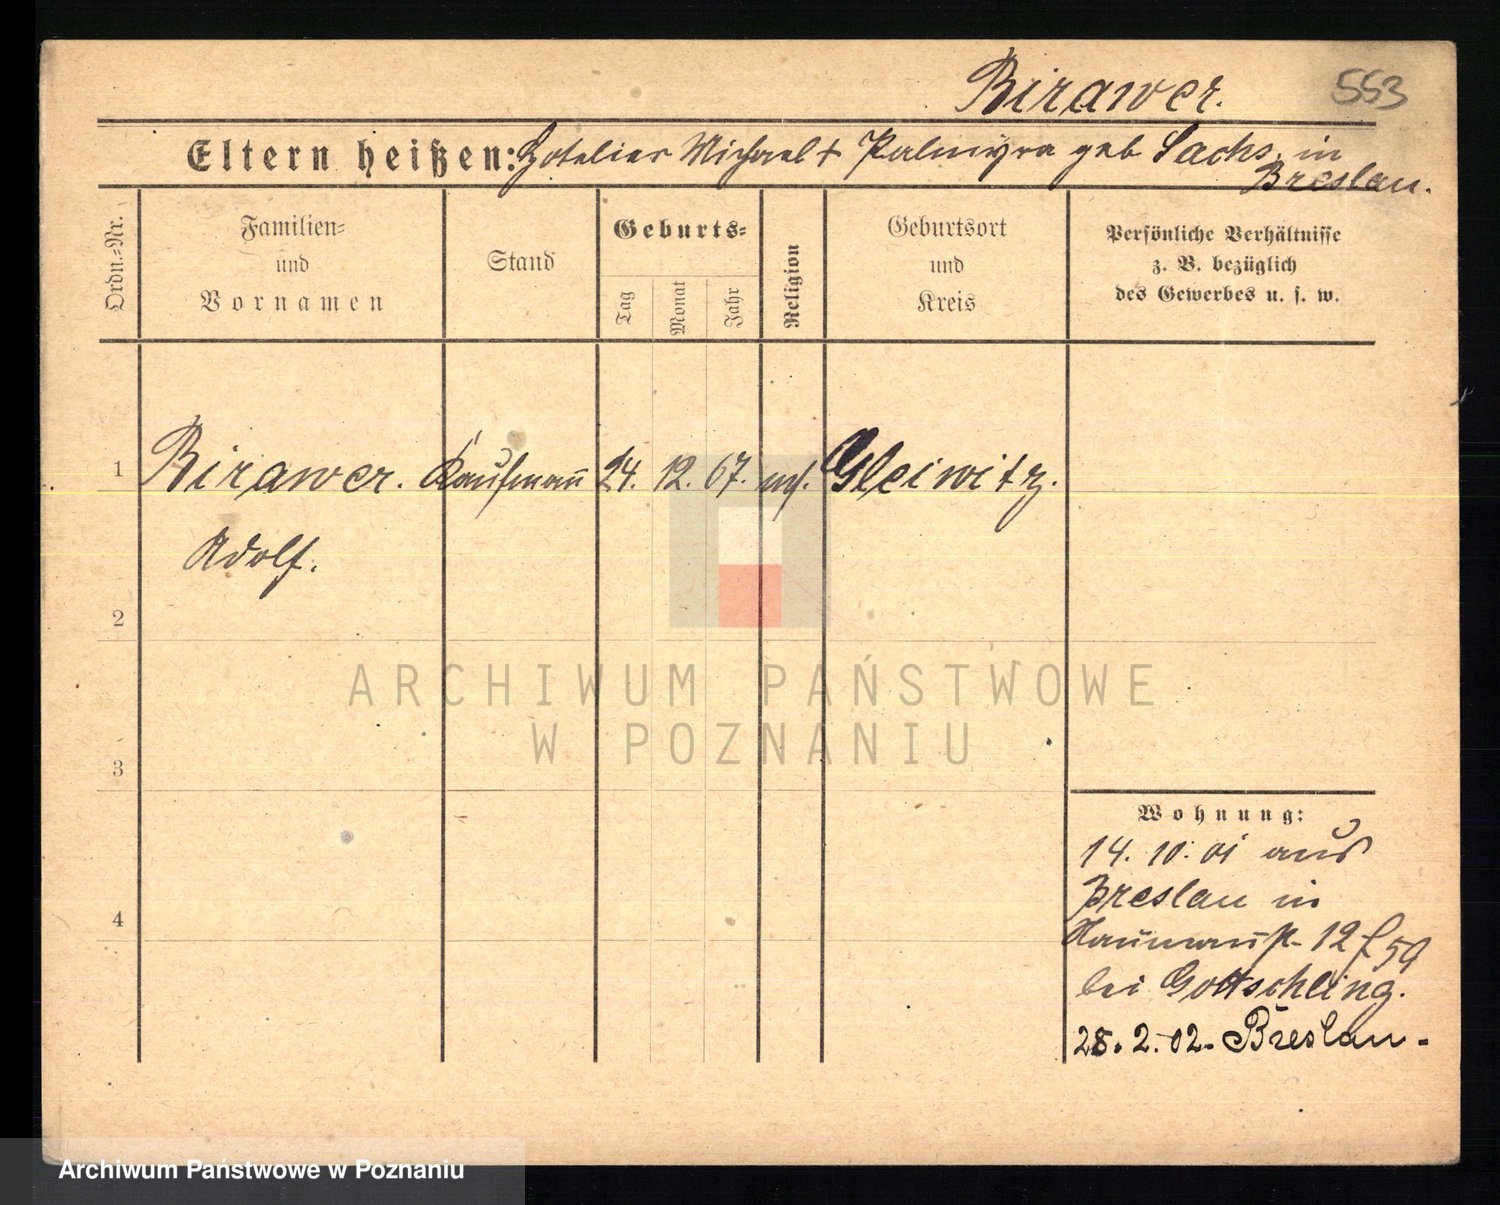 Birawer. 553
Eltern heißen: Hotelier Michael + Palmyra geb Sachs, in
Breslau.
Ordn.-Nr.
Familien-
und
Vornamen
Stand
Geburts-
Tag
Monat
Jahr
Religion
Geburtsort
und
Kreis
Persönliche Verhältnisse
z. B. bezüglich
des Gewerbes u. s. w.
1 Birawer. Kaufmann 24. 12. 67. mos. Gleiwitz.
Adolf.
2
3
4
ARCHIWUM PAŃSTWOWE
W POZNANIU
Wohnung:
14. 10. 01 aus
Breslau in
Naumannst. 12 f 59
bei Gottschling.
28. 2. 02. Breslau.
Archiwum Państwowe w Poznaniu